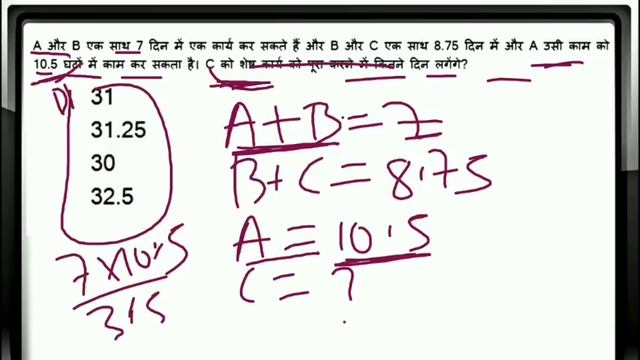 A और B एक साथ 7 दिन में एक कार्य कर सकते हैं और B और C एक साथ 8.75 दिन में और A उसी काम को
10.5 घंटों में काम कर सकता है। C को शेष कार्य को पूरा करने में कितने दिन लगेंगे?
D)
31
31.25
30
32.5
A+B=7
B+C=8.75
A=10.5
C=?
7×10.5
3.5